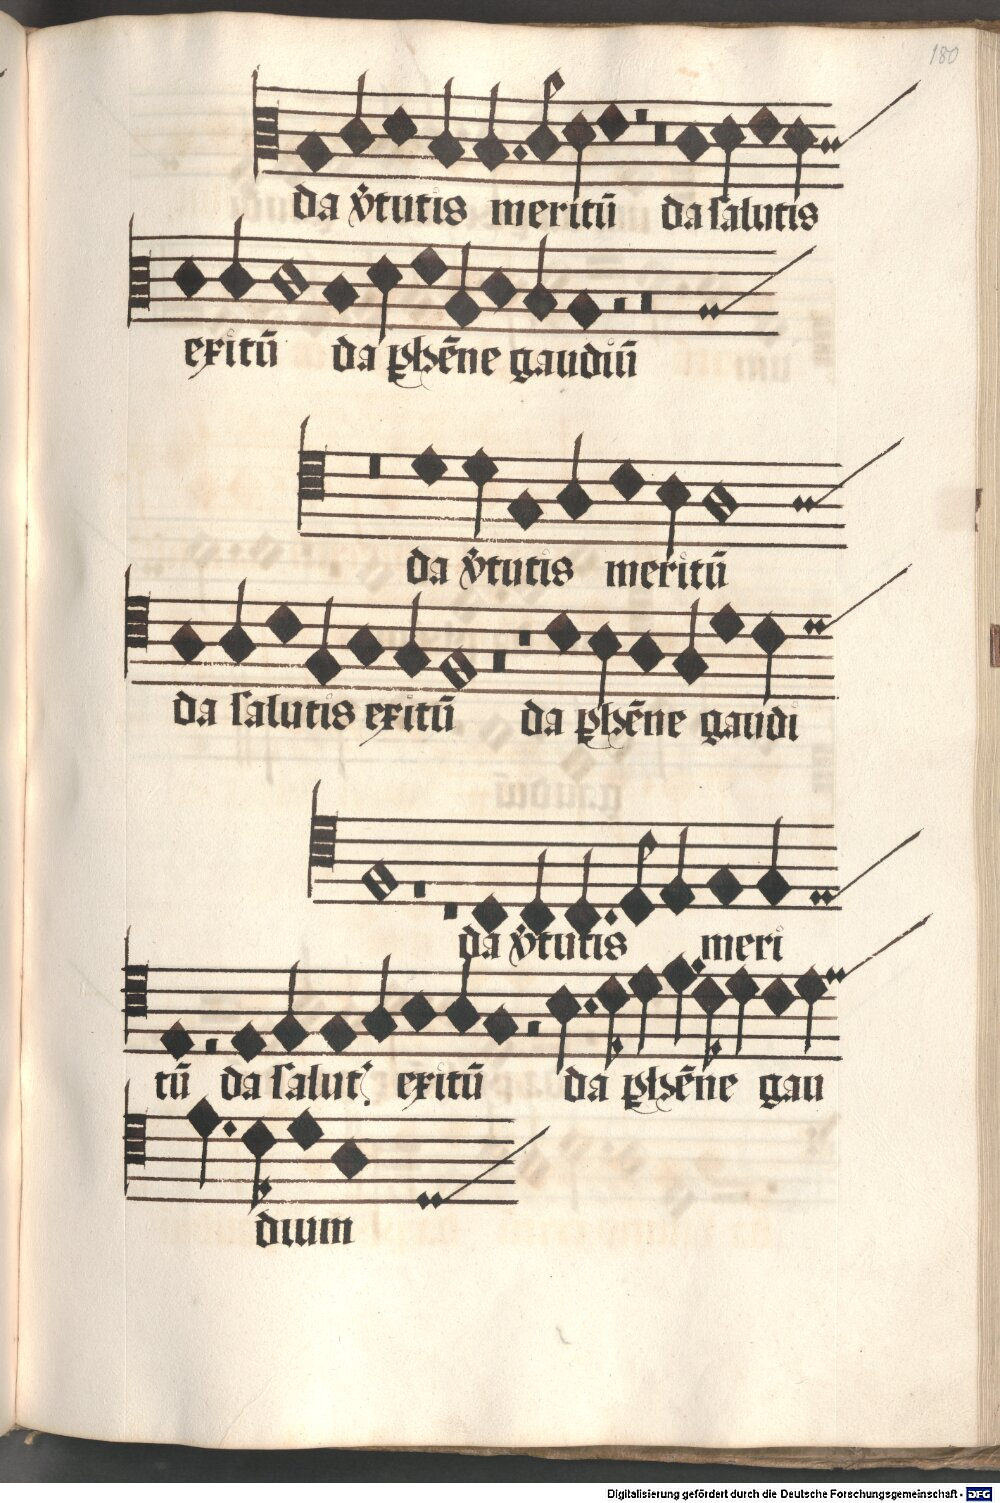 180
da v̾tutis meritū da salutis
exitū da phēne gaudiū
da v̾tutis meritū
da salutis exitū da phēne gaudi
da v̾tutis meri
tū da salut exitū da phēne gau
dium
Digitalisierung gefördert durch die Deutsche Forschungsgemeinschaft - DFG